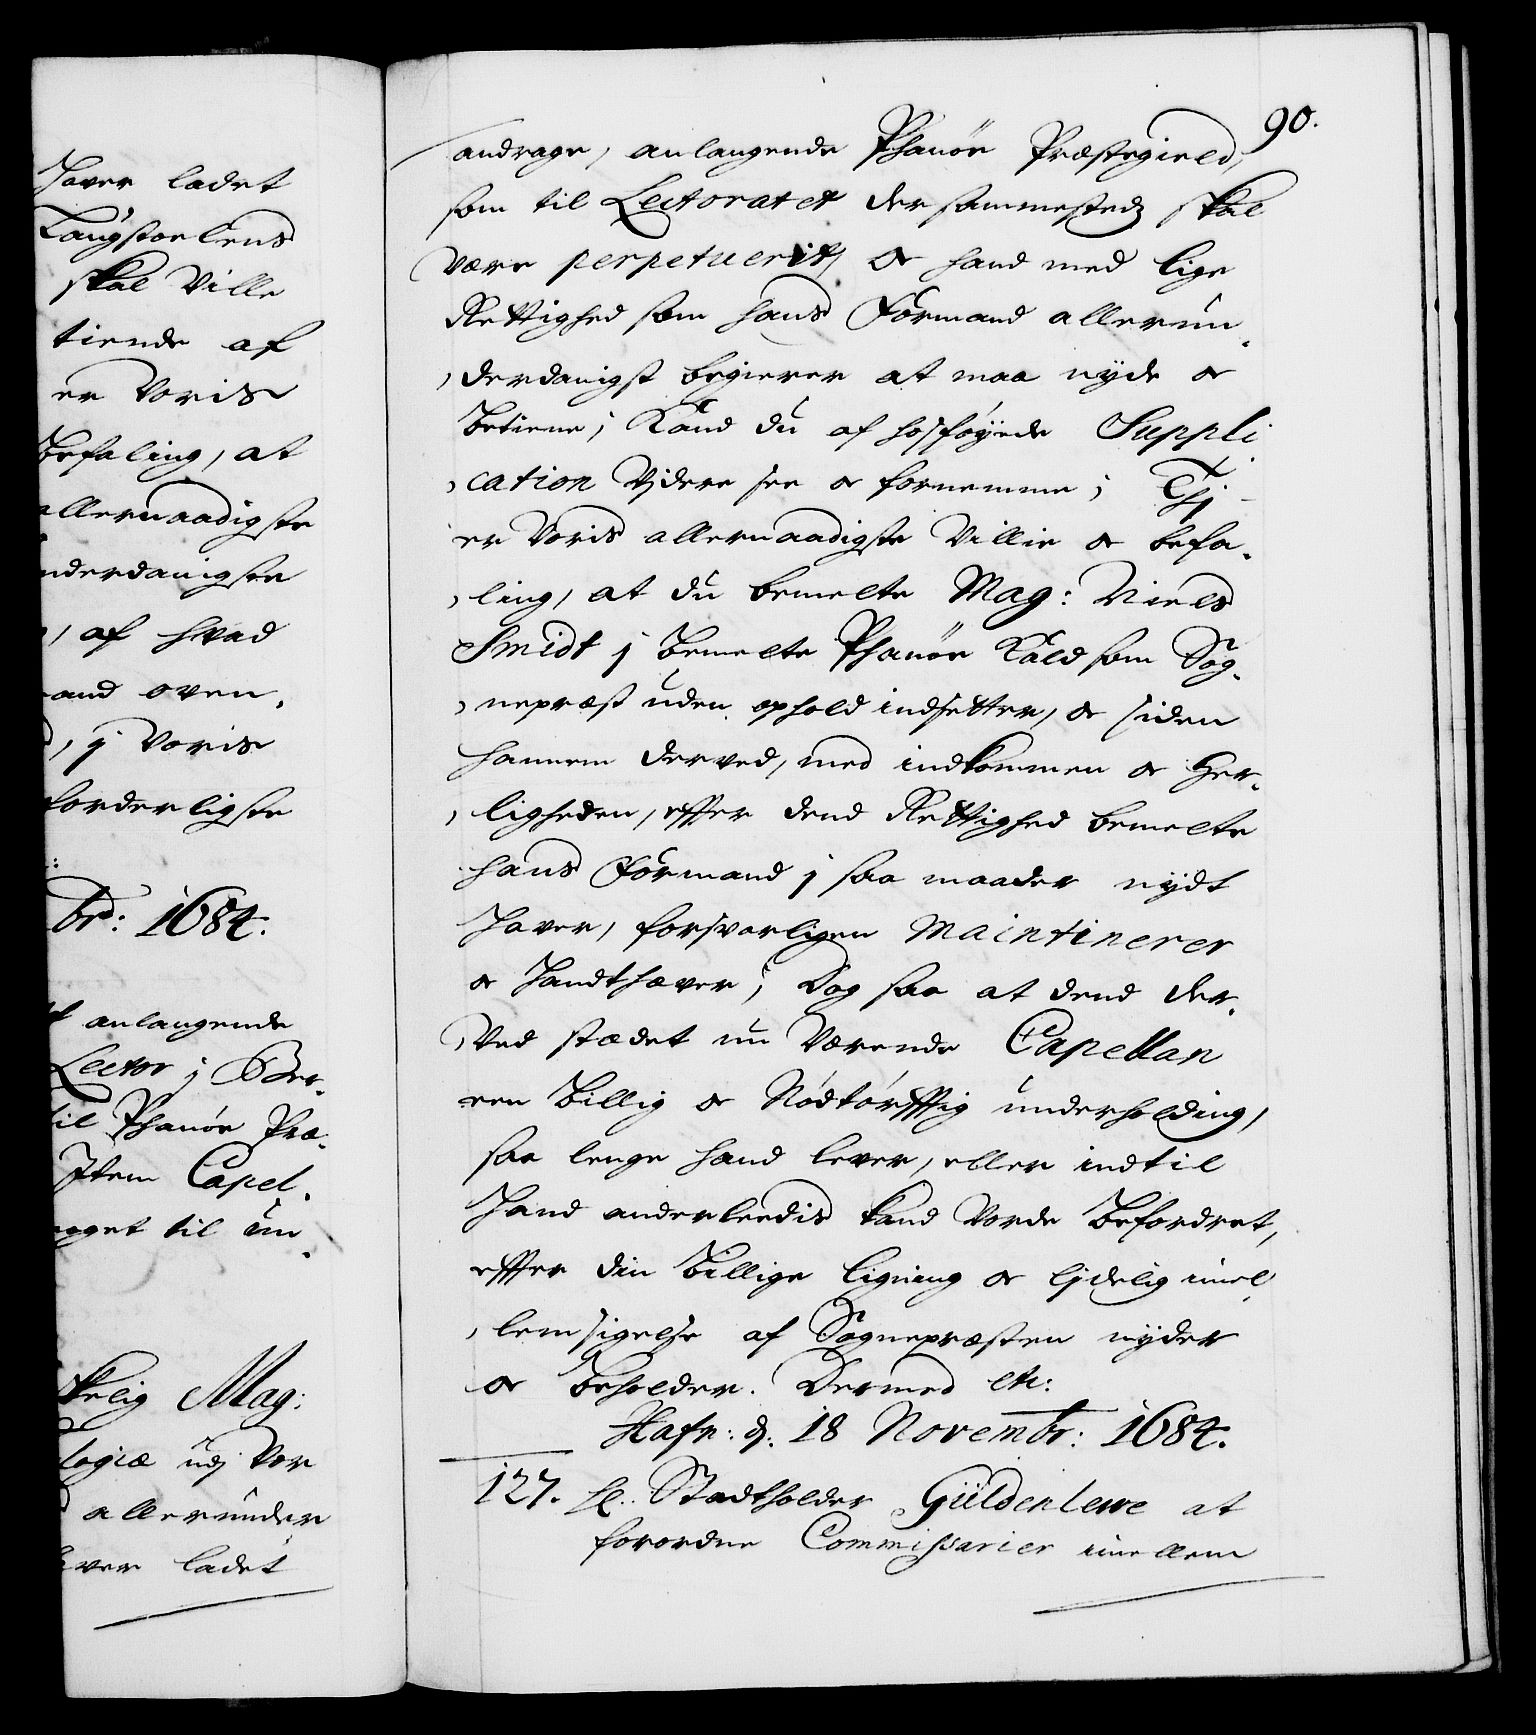 haver ladet
Laugstoelens
skal Ville
tiende af
er Voris
Befaling, at
allernaadigste
underdanigste
, af hvad
and oven,
, j Voris
forderligste
br: 1684.
anlangende
Lector j Ber,
til Phanöe Præ,
Item Capel,
noget til un,
kelig Mag:
logiæ udj Vor
allerunder
haver ladet
90.
andrage, anlangende Phanöe Præstegield,
som til Lectoratet dersammestedz skal
være perpetuerit, or hand med lige
Rettighed som hans Formand allerun,
,derdanigst begierer at maa nyde or
betiene; Kand du af hosföyede Suppli,
,cation Vjdere see or fornemme; Thj
er Voris allernaadigste Villie or befa,
,ling, at du bemelte Mag: Niels
Smidt j bemelte Phanöe Kald som Sog,
,nepræst uden ophold indsetter, or siden
hannem derved, med indkommen or Her,
,ligheden, effter dend Rettighed bemelte
hans Formand j saa maader nydt
haver, forsvarligen maintinerer
or handthæver; Dog saa at dend der,
,Ved stædet nu Værende Capellan
een billig or Nödtörfftig underholding,
saa lenge hand lever, eller indtil
hand anderleedis kand Vorde befordret,
effter din billige ligning or lydelig imel,
,lemsigelse af Sognepræsten nyder
or beholder. Dermed etc:
Hafn: d: 18 Novembr: 1684.
127. H: Stadtholder Güldenlewe at
forordne Commissarier imellem